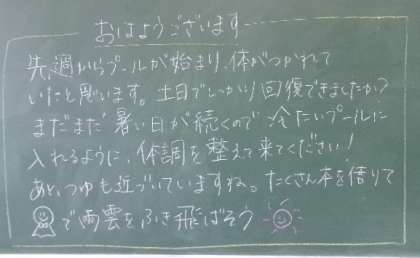 おはようございます
先週からプールが始まり、体がつかれて
いたと思います。土日でしっかり回復できましたか?
まだまだ暑い日が続くので、冷たいプールに
入れるように、体調を整えて来てください!
あと、つゆも近づいていますね。たくさん本を借りて
で雨雲をふき飛ばそう